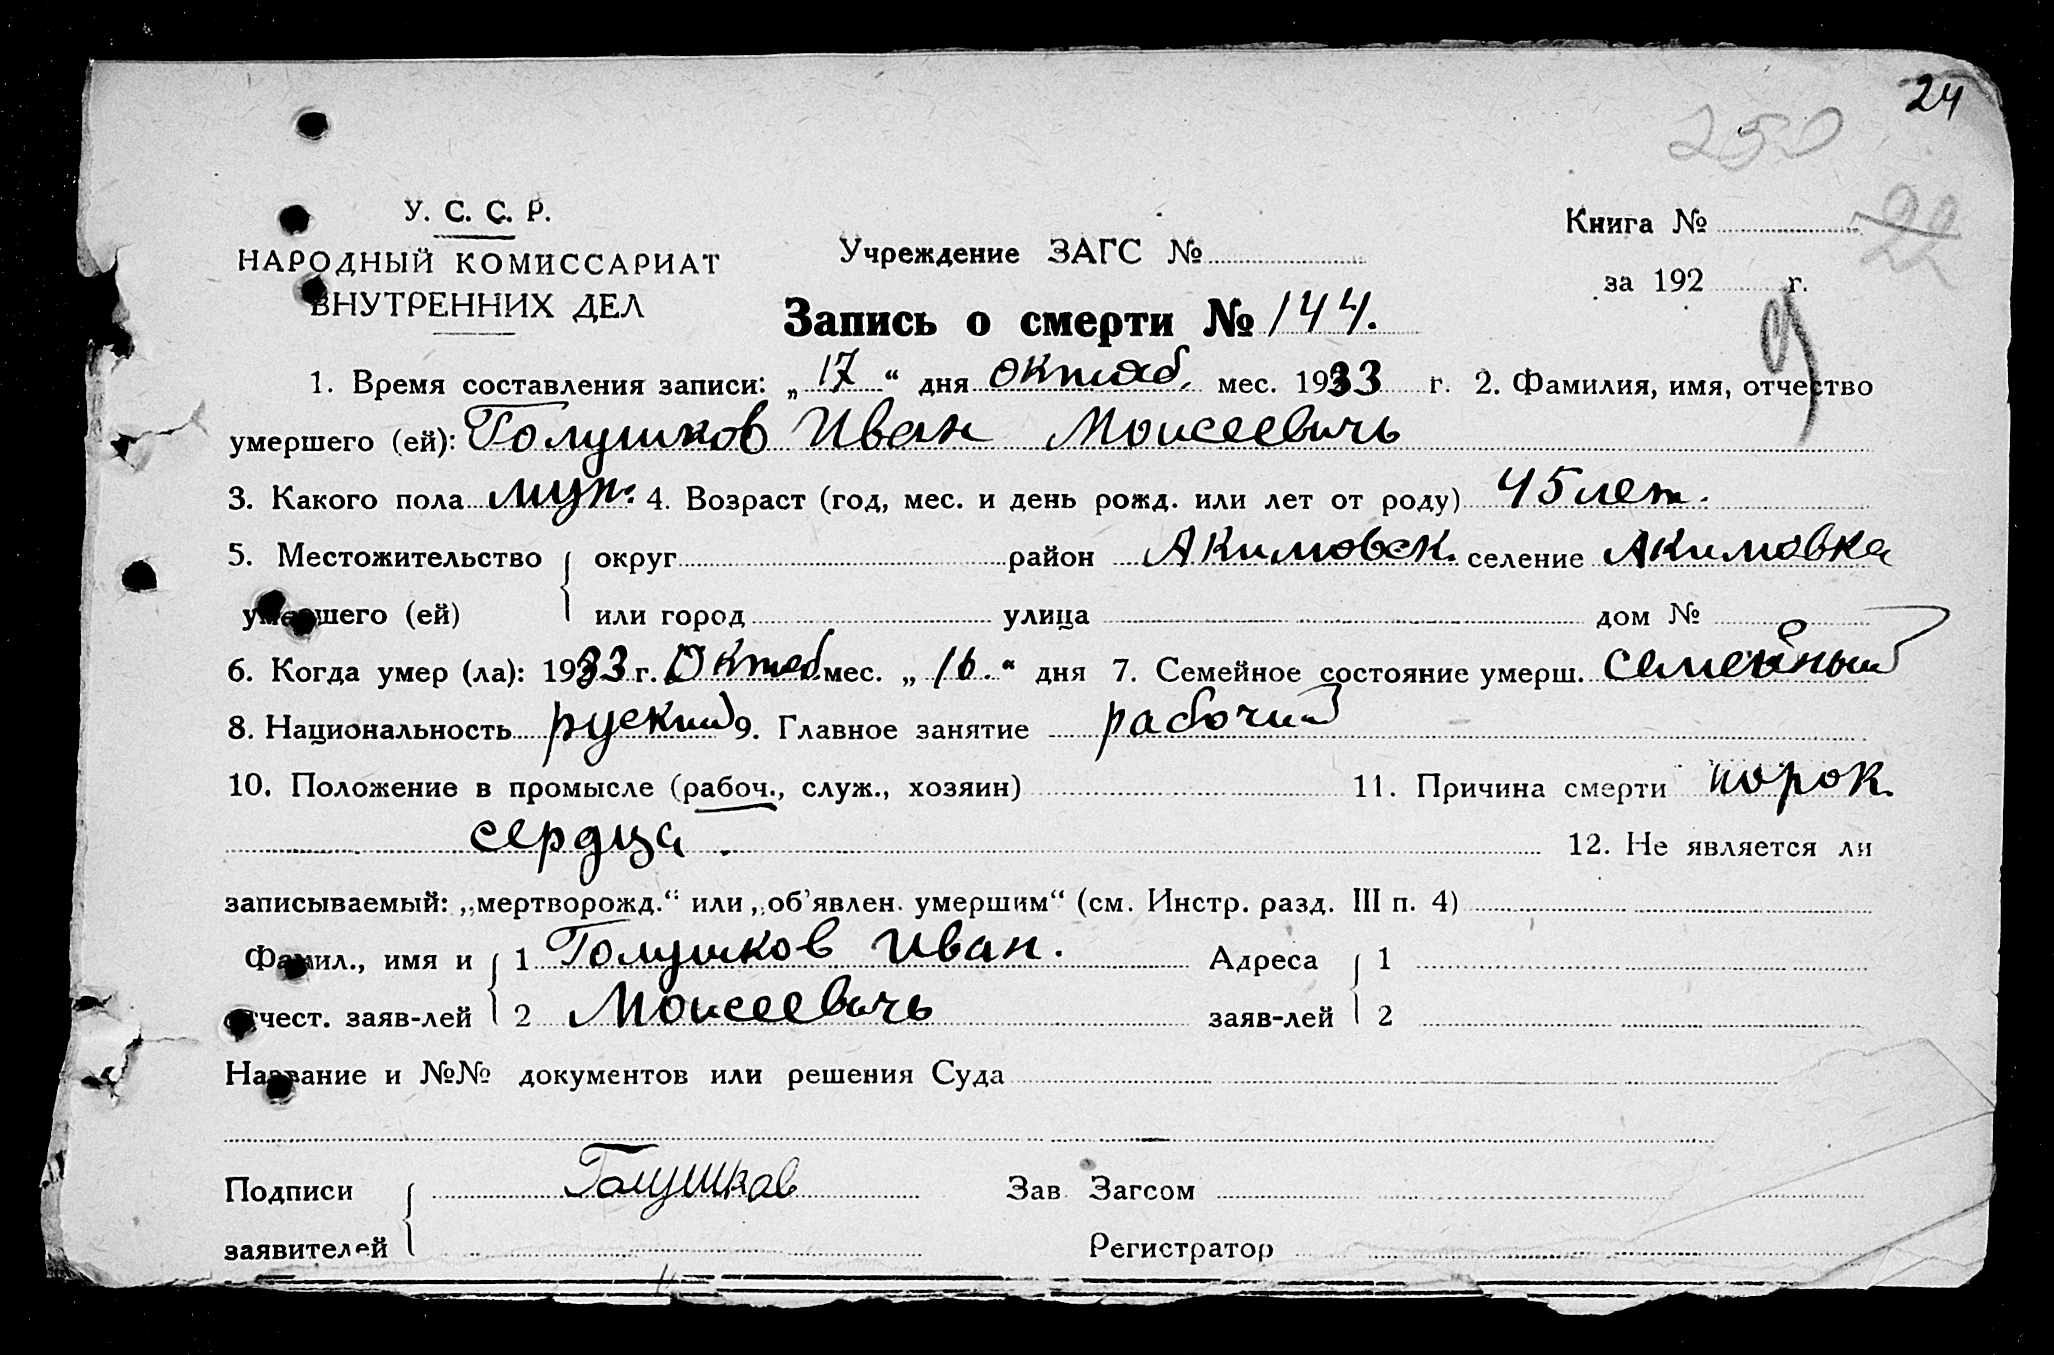 24
250
У. С. С. Р.
НАРОДНЫЙ КОМИССАРИАТ
ВНУТРЕННИХ ДЕЛ
Учреждение ЗАГС №
Книга № 22
за 192 г.
Запись о смерти № 144.
1. Время составления записи: „ 17 “ дня октяб. мес. 1933 г. 2. Фамилия, имя, отчество
умершего (ей): Голушков Иван Моисеевичь
3. Какого пола муж. 4. Возраст (год, мес. и день рожд. или лет от роду) 45 лет.
5. Местожительство округ район Акимовск. селение Акимовка
умершего (ей) или город улица дом №
6. Когда умер (ла): 1933 г. Октяб. мес. „ 16. “ дня 7. Семейное состояние умерш. семейный
8. Национальность руский 9. Главное занятие рабочий
10. Положение в промысле (рабоч., служ., хозяин) 11. Причина смерти порок
сердца. 12. Не является ли
записываемый: „мертворожд.“ или „об’явлен. умершим“ (см. Инстр. разд. III п. 4)
Фамил., имя и 1 Голушков Иван. Адреса 1
отчест. заяв-лей 2 Моисеевичь заяв-лей 2
Название и №№ документов или решения Суда
Подписи Голушков Зав. Загсом
заявителей Регистратор